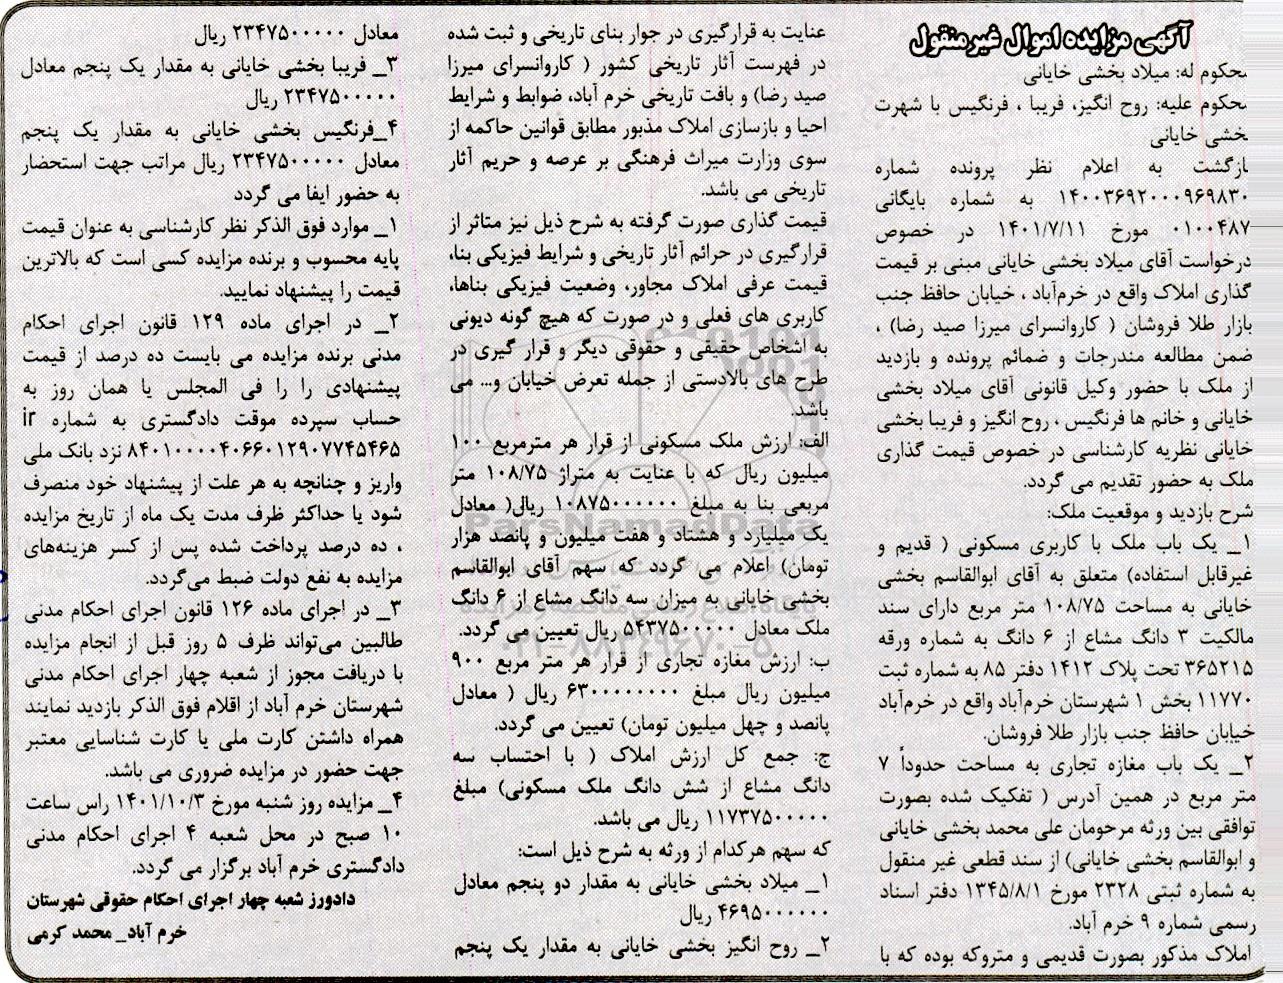 آگهی مزایده اموال غیرمنقول
محکوم له: میلاد بخشی خایانی
محکوم علیه: روح انگیز، فریبا ، فرنگیس با شهرت
بخشی خایانی
بازگشت به اعلام نظر پرونده شماره
۱۴۰۰۳۶۹۲۰۰۰۹۶۹۸۳۰ به شماره بایگانی
۰۱۰۰۴۸۷ مورخ ۱۴۰۱/۷/۱۱ در خصوص
درخواست آقای میلاد بخشی خایانی مبنی بر قیمت
گذاری املاک واقع در خرم‌آباد ، خیابان حافظ جنب
بازار طلا فروشان ( کاروانسرای میرزا صید رضا) ،
ضمن مطالعه مندرجات و ضمائم پرونده و بازدید
از ملک با حضور وکیل قانونی آقای میلاد بخشی
خایانی و خانم ها فرنگیس ، روح انگیز و فریبا بخشی
خایانی نظریه کارشناسی در خصوص قیمت گذاری
ملک به حضور تقدیم می گردد.
شرح بازدید و موقعیت ملک:
۱_ یک باب ملک با کاربری مسکونی ( قدیم و
غیرقابل استفاده) متعلق به آقای ابوالقاسم بخشی
خایانی به مساحت ۱۰۸/۷۵ متر مربع دارای سند
مالکیت ۳ دانگ مشاع از ۶ دانگ به شماره ورقه
۳۶۵۲۱۵ تحت پلاک ۱۴۱۲ دفتر ۸۵ به شماره ثبت
۱۱۷۷۰ بخش ۱ شهرستان خرم‌آباد واقع در خرم‌آباد
خیابان حافظ جنب بازار طلا فروشان.
۲_ یک باب مغازه تجاری به مساحت حدوداً ۷
متر مربع در همین آدرس ( تفکیک شده بصورت
توافقی بین ورثه مرحومان علی محمد بخشی خایانی
و ابوالقاسم بخشی خایانی) از سند قطعی غیر منقول
به شماره ثبتی ۲۳۲۸ مورخ ۱۳۴۵/۸/۱ دفتر اسناد
رسمی شماره ۹ خرم آباد.
املاک مذکور بصورت قدیمی و متروکه بوده که با
عنایت به قرارگیری در جوار بنای تاریخی و ثبت شده
در فهرست آثار تاریخی کشور ( کاروانسرای میرزا
صید رضا) و بافت تاریخی خرم آباد، ضوابط و شرایط
احیا و بازسازی املاک مذبور مطابق قوانین حاکمه از
سوی وزارت میراث فرهنگی بر عرصه و حریم آثار
تاریخی می باشد.
قیمت گذاری صورت گرفته به شرح ذیل نیز متاثر از
قرارگیری در حرائم آثار تاریخی و شرایط فیزیکی بنا،
قیمت عرفی املاک مجاور، وضعیت فیزیکی بناها،
کاربری های فعلی و در صورت که هیچ گونه دیونی
به اشخاص حقیقی و حقوقی دیگر و قرار گیری در
طرح های بالادستی از جمله تعرض خیابان و... می
باشد.
الف: ارزش ملک مسکونی از قرار هر مترمربع ۱۰۰
میلیون ریال که با عنایت به متراژ ۱۰۸/۷۵ متر
مربعی بنا به مبلغ ۱۰۸۷۵۰۰۰۰۰۰ ریال( معادل
یک میلیارد و هشتاد و هفت میلیون و پانصد هزار
تومان) اعلام می گردد که سهم آقای ابوالقاسم
بخشی خایانی به میزان سه دانگ مشاع از ۶ دانگ
ملک معادل ۵۴۳۷۵۰۰۰۰۰ ریال تعیین می گردد.
ب: ارزش مغازه تجاری از قرار هر متر مربع ۹۰۰
میلیون ریال مبلغ ۶۳۰۰۰۰۰۰۰۰ ریال ( معادل
پانصد و چهل میلیون تومان) تعیین می گردد.
ج: جمع کل ارزش املاک ( با احتساب سه
دانگ مشاع از شش دانگ ملک مسکونی) مبلغ
۱۱۷۳۷۵۰۰۰۰۰ ریال می باشد.
که سهم هرکدام از ورثه به شرح ذیل است:
۱_ میلاد بخشی خایانی به مقدار دو پنجم معادل
۴۶۹۵۰۰۰۰۰۰ ریال
۲_ روح انگیز بخشی خایانی به مقدار یک پنجم
معادل ۲۳۴۷۵۰۰۰۰۰ ریال
۳_ فریبا بخشی خایانی به مقدار یک پنجم معادل
۲۳۴۷۵۰۰۰۰۰ ریال
۴_فرنگیس بخشی خایانی به مقدار یک پنجم
معادل ۲۳۴۷۵۰۰۰۰۰ ریال مراتب جهت استحضار
به حضور ایفا می گردد
۱_ موارد فوق الذکر نظر کارشناسی به عنوان قیمت
پایه محسوب و برنده مزایده کسی است که بالاترین
قیمت را پیشنهاد نمایید.
۲_ در اجرای ماده ۱۲۹ قانون اجرای احکام
مدنی برنده مزایده می بایست ده درصد از قیمت
پیشنهادی را را فی المجلس یا همان روز به
حساب سپرده موقت دادگستری به شماره ir
۸۴۰۱۰۰۰۰۴۰۶۶۰۱۲۹۰۷۷۴۵۴۶۵ نزد بانک ملی
واریز و چنانچه به هر علت از پیشنهاد خود منصرف
شود یا حداکثر ظرف مدت یک ماه از تاریخ مزایده
، ده درصد پرداخت شده پس از کسر هزینه‌های
مزایده به نفع دولت ضبط می‌گردد.
۳_ در اجرای ماده ۱۲۶ قانون اجرای احکام مدنی
طالبین می‌تواند ظرف ۵ روز قبل از انجام مزایده
با دریافت مجوز از شعبه چهار اجرای احکام مدنی
شهرستان خرم آباد از اقلام فوق الذکر بازدید نمایند
همراه داشتن کارت ملی یا کارت شناسایی معتبر
جهت حضور در مزایده ضروری می باشد.
۴_ مزایده روز شنبه مورخ ۱۴۰۱/۱۰/۳ راس ساعت
۱۰ صبح در محل شعبه ۴ اجرای احکام مدنی
دادگستری خرم آباد برگزار می گردد.
دادورز شعبه چهار اجرای احکام حقوقی شهرستان
خرم آباد_ محمد کرمی
ParsNamadData